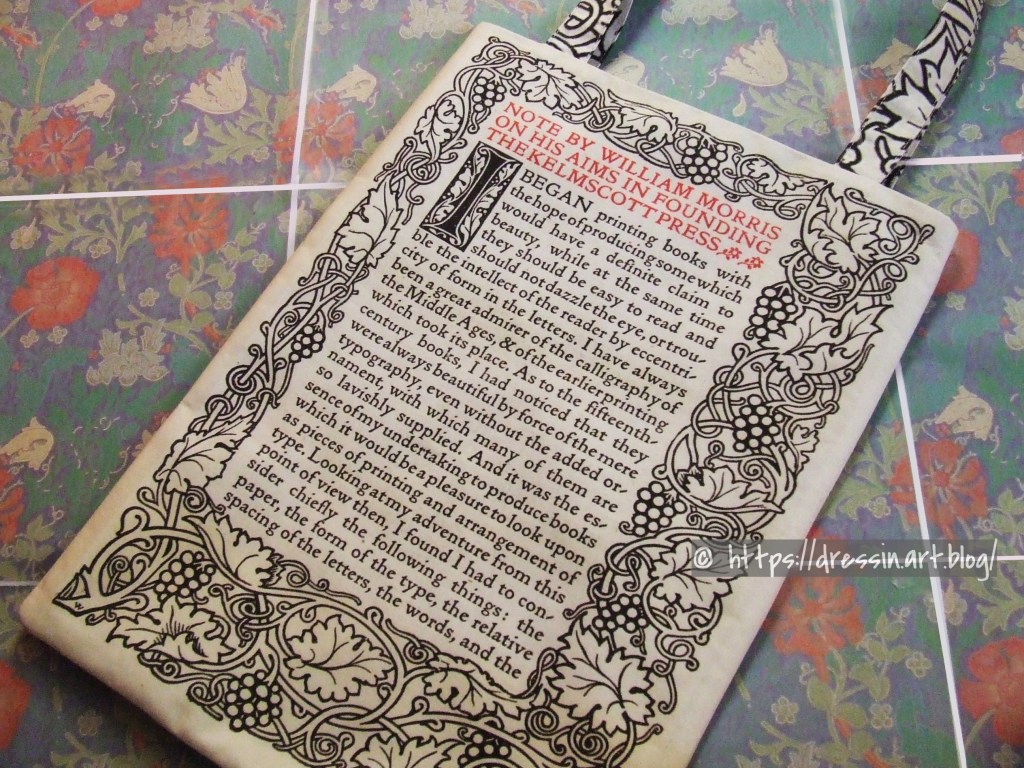 NOTE BY WILLIAM MORRIS
ON HIS AIMS IN FOUNDING
THE KELMSCOTT PRESS
I BEGAN printing books with
the hope of producing some which
would have a definite claim to
beauty, while at the same time
they should be easy to read and
should not dazzle the eye, or trou-
ble the intellect of the reader by eccentri-
city of form in the letters. I have always
been a great admirer of the calligraphy of
the Middle Ages, & of the earlier printing
which took its place. As to the fifteenth-
century books, I had noticed that they
were always beautiful by force of the mere
typography, even without the added or-
nament, with which many of them are
so lavishly supplied. And it was the es-
sence of my undertaking to produce books
which it would be a pleasure to look upon
as pieces of printing and arrangement of
type. Looking at my adventure from this
point of view then, I found I had to con-
sider chiefly the following things: the
paper, the form of the type, the relative
spacing of the letters, the words, and the
© https://dressinart.blog/